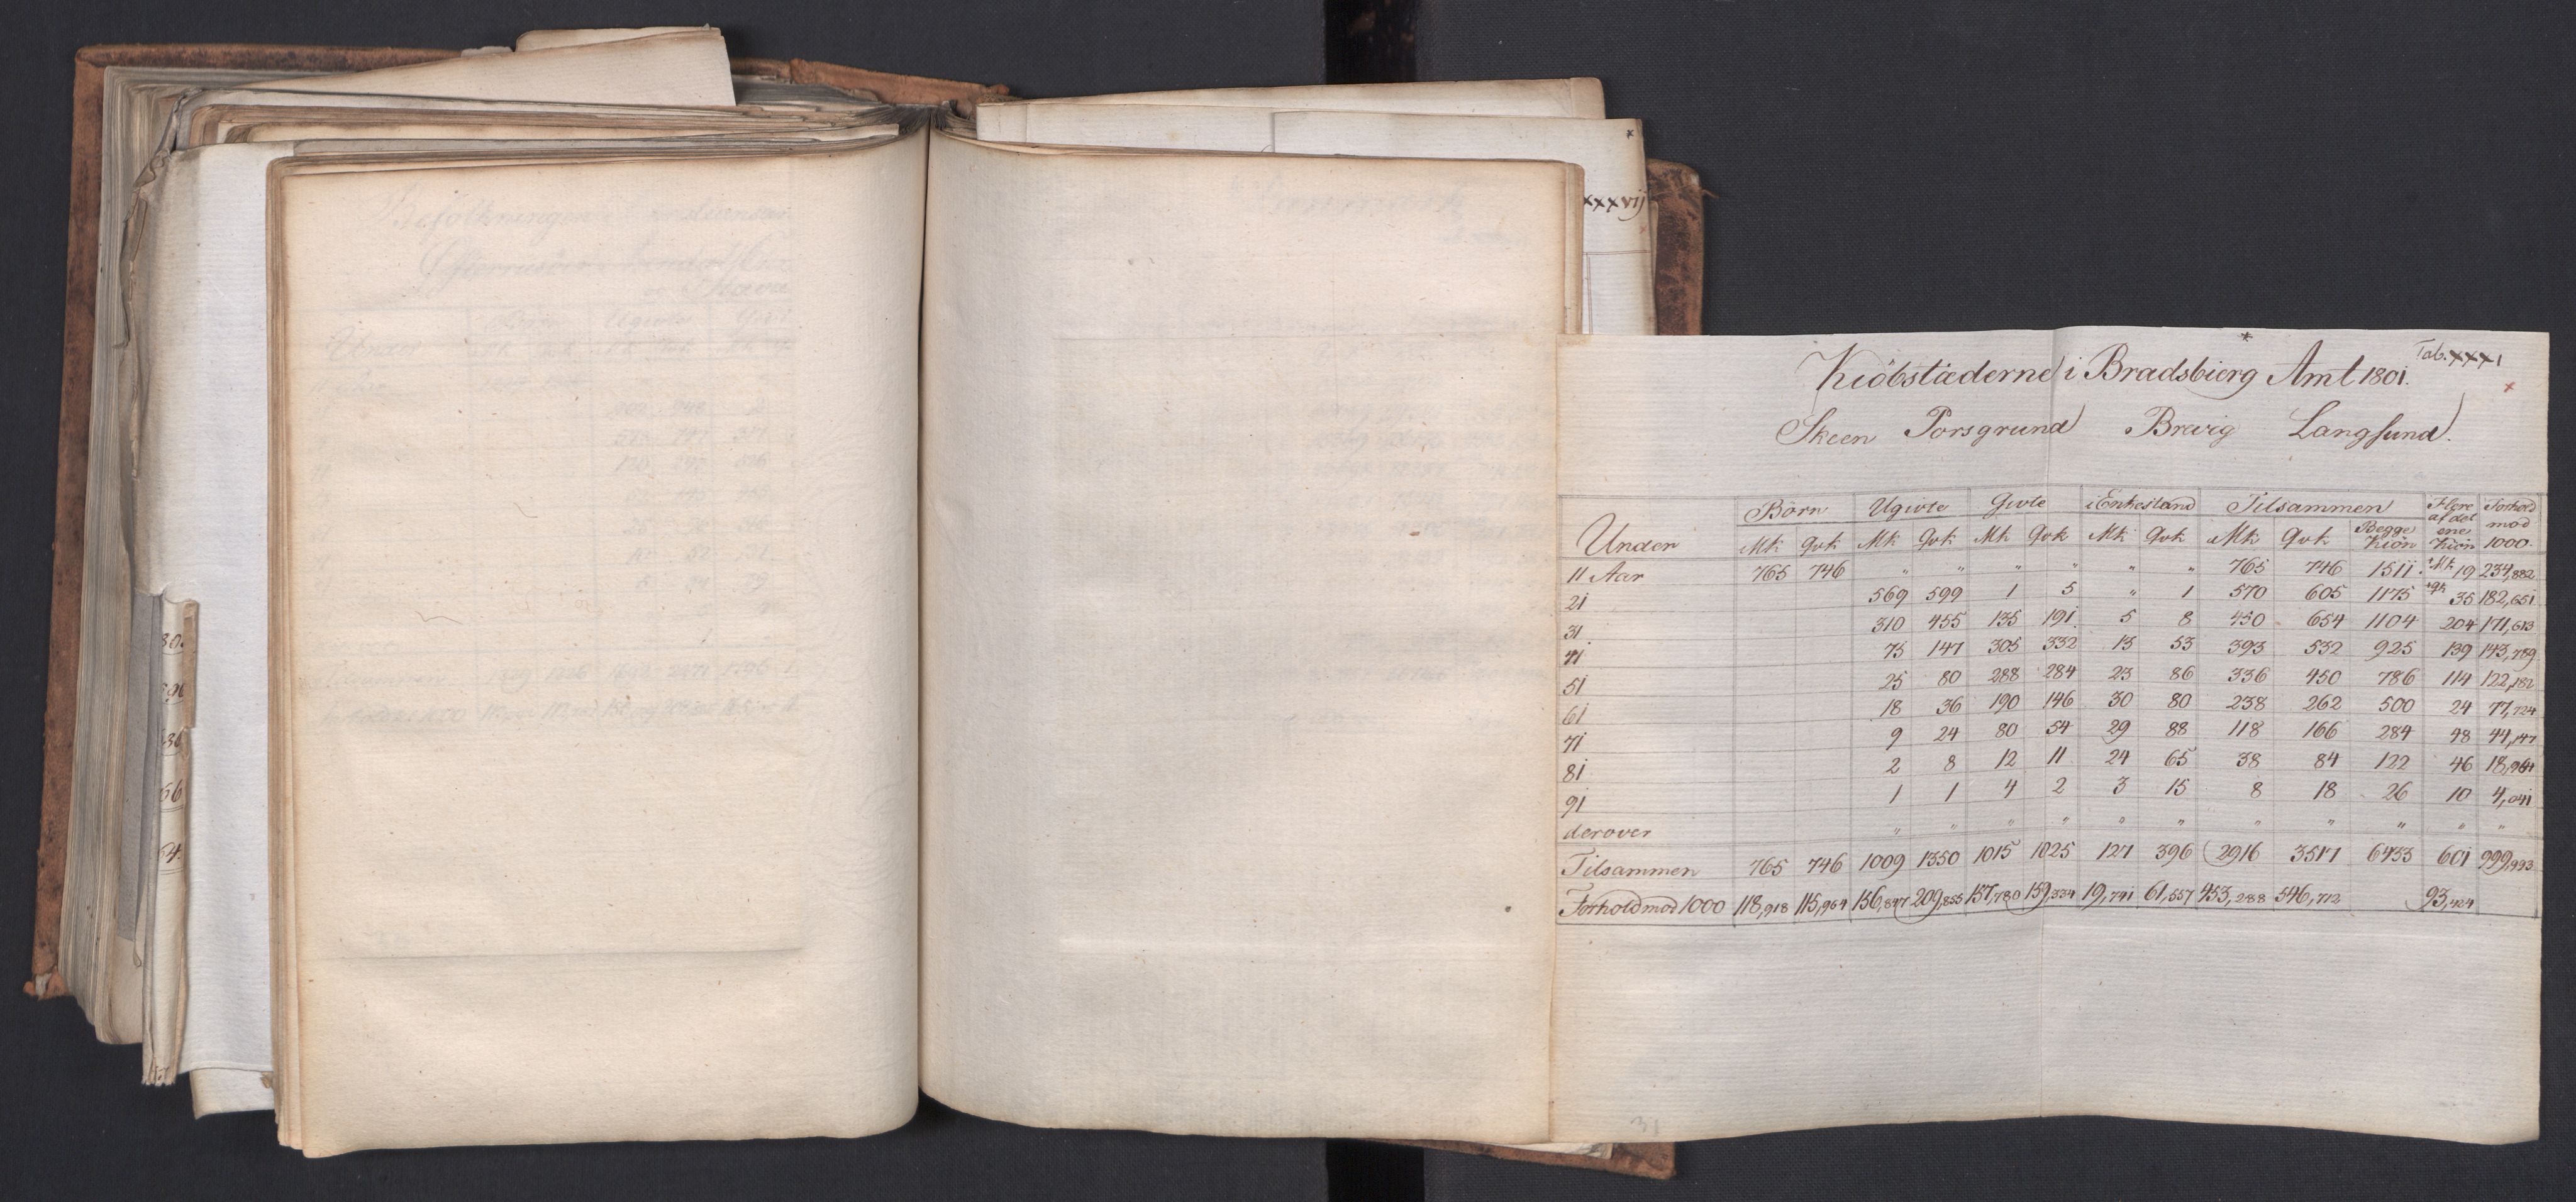 Tab. XXXI
Kiöbstæderne i Bradsbierg Amt 1801.
Skeen Porsgrund Brevig Langsund.
Under Börn Ugivte Givte i Enkestand Tilsammen Flere af det ene Kiön Forhold mod 1000.
Mk Qvk Mk Qvk Mk Qvk Mk Qvk Mk Qvk Begge Kiön
11 Aar 765 746 " " " " " " 765 746 1511 Mk 19 234,882
21 569 599 1 5 " 1 570 605 1175 qk 35 182,651
31 310 455 135 191 5 8 450 654 1104 204 171,613
41 75 147 305 332 13 53 393 532 925 139 143,789
51 25 80 288 284 23 86 336 450 786 114 122,182
61 18 36 190 146 30 80 238 262 500 24 77,724
71 9 24 80 54 29 88 118 166 284 48 44,147
81 2 8 12 11 24 65 38 84 122 46 18,964
91 1 1 4 2 3 15 8 18 26 10 4,041
derover " " " " " " " " " " "
Tilsammen 765 746 1009 1350 1015 1025 127 396 2916 3517 6433 601 999,993
Forhold mod 1000 118,918 115,964 156,847 209,855 157,780 159,334 19,741 61,557 453,288 546,712 93,424
xxxvij